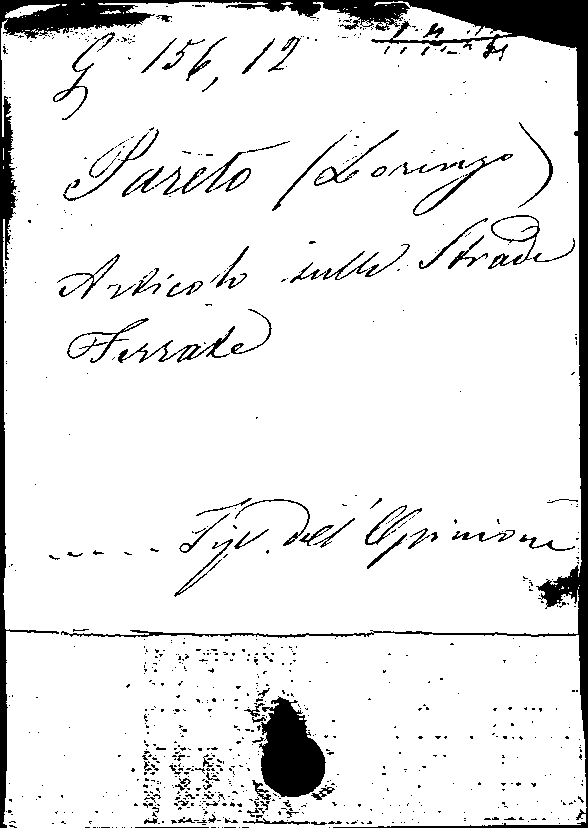 G 156, 12
Pareto (Lorenzo)
Articolo sulle Strade
Ferrate
..... Tip. dell'Opinione